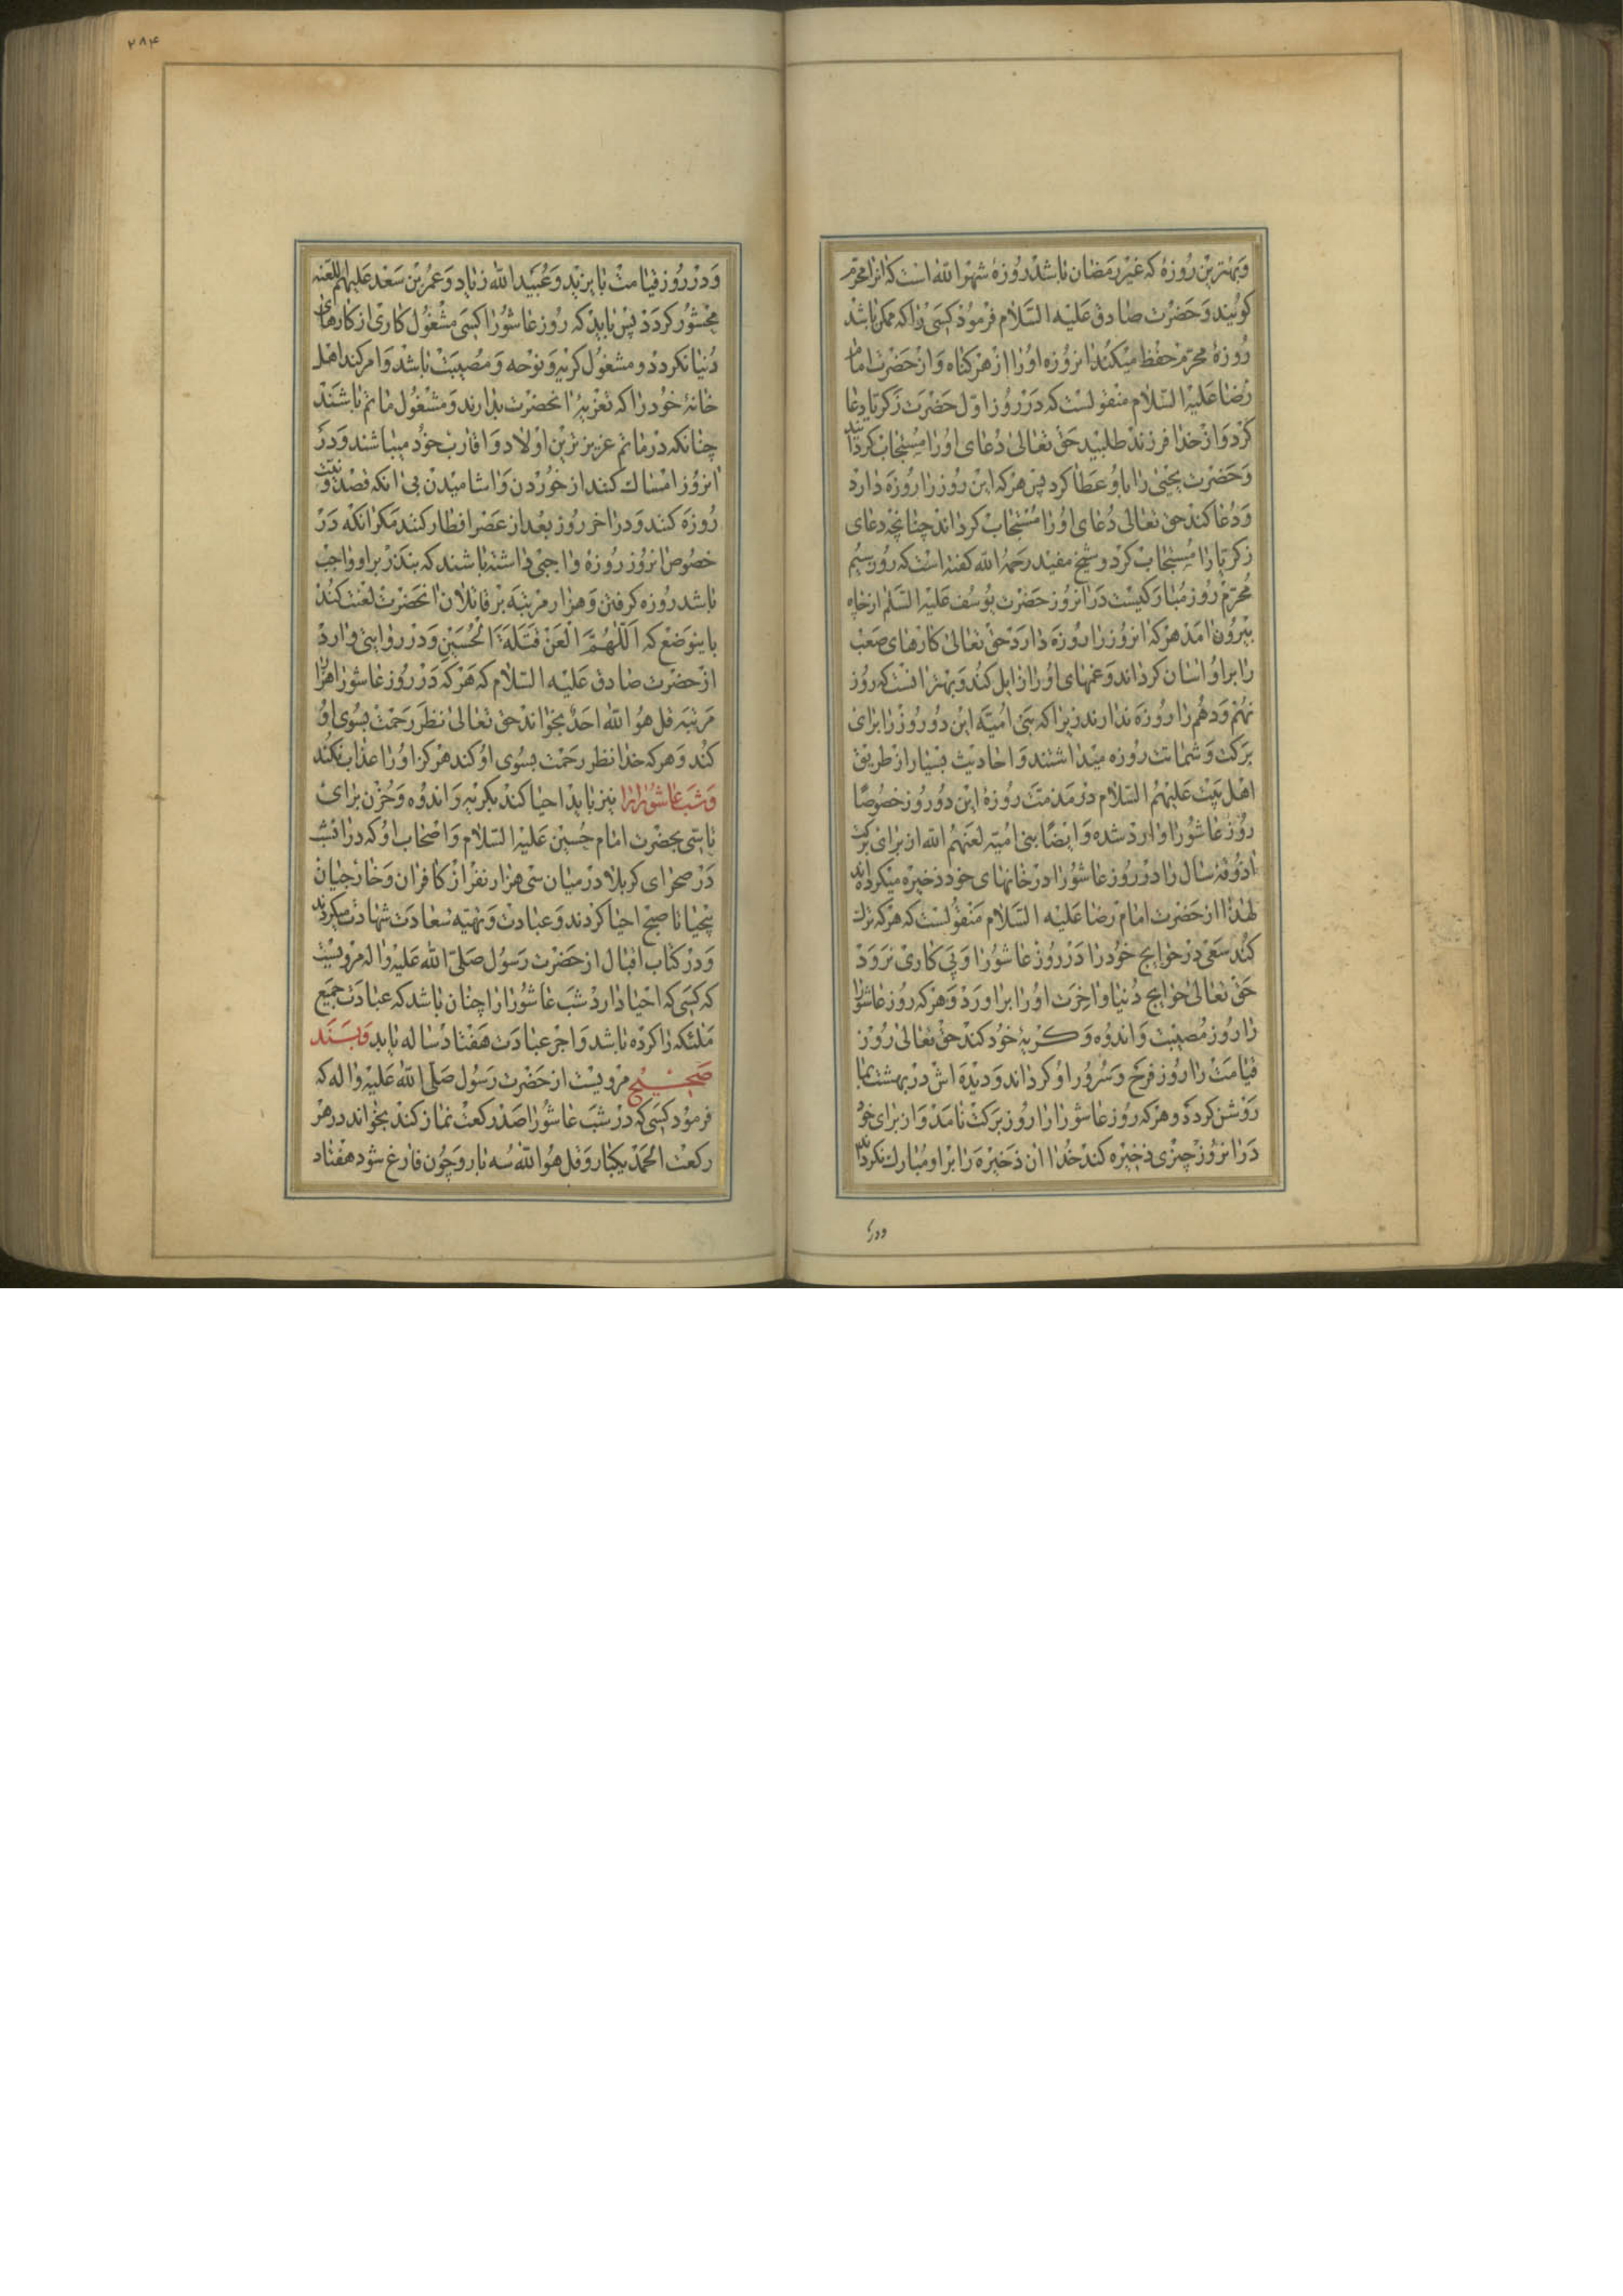 وبهترین روزهٔ که غیر رمضان باشد روزهٔ شهر الله است که انرا محرّم
کویند وحضرت صادق علیه السّلام فرمود کسی را که ممکن باشد
روزهٔ محرّم حفظ میکند انروزه اورا از هر کناه واز حضرت امام
رضا علیه السّلام منقولست که در روز اوّل حضرت زکریا دعا
کرد واز خدا فرزند طلبید حق تعالی دعای اورا مستجاب کرد
وحضرت یحیی را باو عطا کرد پس هر که این روز را روزه دارد
ودعا کند حق تعالی دعای اورا مستجاب کرداند چنانچه دعای
زکریا را مستجاب کرد وشیخ مفید رحمه الله کفته است که روز سیّم
محرّم روز مبارکیست در انروز حضرت یوسف علیه السّلم از چاه
بیرون امد هر که انروز را روزه دارد حق تعالی کارهای صعب
را بر او اسان کرداند وغمهای اورا زایل کند وبهتر انست که روز
نهم ودهم را روزه ندارند زیرا که بنی امیّه این دو روز را برای
برکت وشماتت روزه میداشتند واحادیث بسیار از طریق
اهل بیت علیهم السّلام در مذمّت روزهٔ این دو روز خصوصًا
روز عاشورا وارد شده وایضًا بنی امیّه لعنهم الله از برای برکت
اذوقهٔ سال را در روز عاشورا در خانهای خود ذخیره میکرده‌اند
لهذا از حضرت امام رضا علیه السّلام منقولست که هر که ترک
کند سعی در حوایج خود را در روز عاشورا وپی کاری نرود
حق تعالی حوایج دنیا واخرت اورا بر اورد وهر که روز عاشورا
را روز مصیبت واندوه وکریهٔ خود کند حق تعالی روز
قیامت را روز فرح وسرور او کرداند ودیده اش در بهشت بما
روشن کردد وهر که روز عاشورا را روز برکت نامد واز برای خود
در انروز چیزی ذخیره کند خدا ان ذخیره را بر او مبارک نکرداند
ودر
۲۸۴
ودر روز قیامت با یزید وعبید الله زیاد وعمر بن سعد علیهم اللعنه
محشور کردد پس باید که روز عاشورا کسی مشغول کاری از کارهای
دنیا نکردد ومشغول کریه ونوحه ومصیبت باشد وامر کند اهل
خانهٔ خود را که تعزیهٔ انحضرت بدارند ومشغول ماتم باشند
چنانکه در ماتم عزیزترین اولاد واقارب خود میباشند ودر
انروز امساک کنند از خوردن واشامیدن بی انکه قصد ونیّت
روزه کنند ودر اخر روز بعد از عصر افطار کنند مکر انکه در
خصوص انروز روزه واجبی داشته باشند که بنذر بر او واجب
باشد روزه کرفتن وهزار مرتبه بر قاتلان انحضرت لعنت کند
باینوضع که اَللّهُمَّ الْعَنْ قَتَلَةَ الْحُسَیْنِ ودر روایتی وارد
از حضرت صادق علیه السّلام که هر که در روز عاشورا هزار
مرتبه قل هو الله احد بخواند حق تعالی نظر رحمت بسوی او
کند وهر که خدا نظر رحمت بسوی او کند هرکز اورا عذاب نکند
وشب عاشورا را نیز باید احیا کند بکریه واندوه وحزن برای
تاسّی بحضرت امام حسین علیه السّلام واصحاب او که در انشب
در صحرای کربلا در میان سی هزار نفر از کافران وخارجیان
بیحیا تا صبح احیا کردند وعبادت وتهیّه سعادت شهادت میکردند
ودر کتاب اقبال از حضرت رسول صلّی الله علیه واله مرویست
که کسی که احیا دارد شب عاشورا را چنان باشد که عبادت جمیع
ملئکه را کرده باشد واجر عبادت هفتاد ساله یابد وبسند
صحیح مرویست از حضرت رسول صلّی الله علیه واله که
فرمود کسی که در شب عاشورا صد رکعت نماز کند بخواند در هر
رکعت الحمد یکبار وقل هو الله سه بار وچون فارغ شود هفتاد